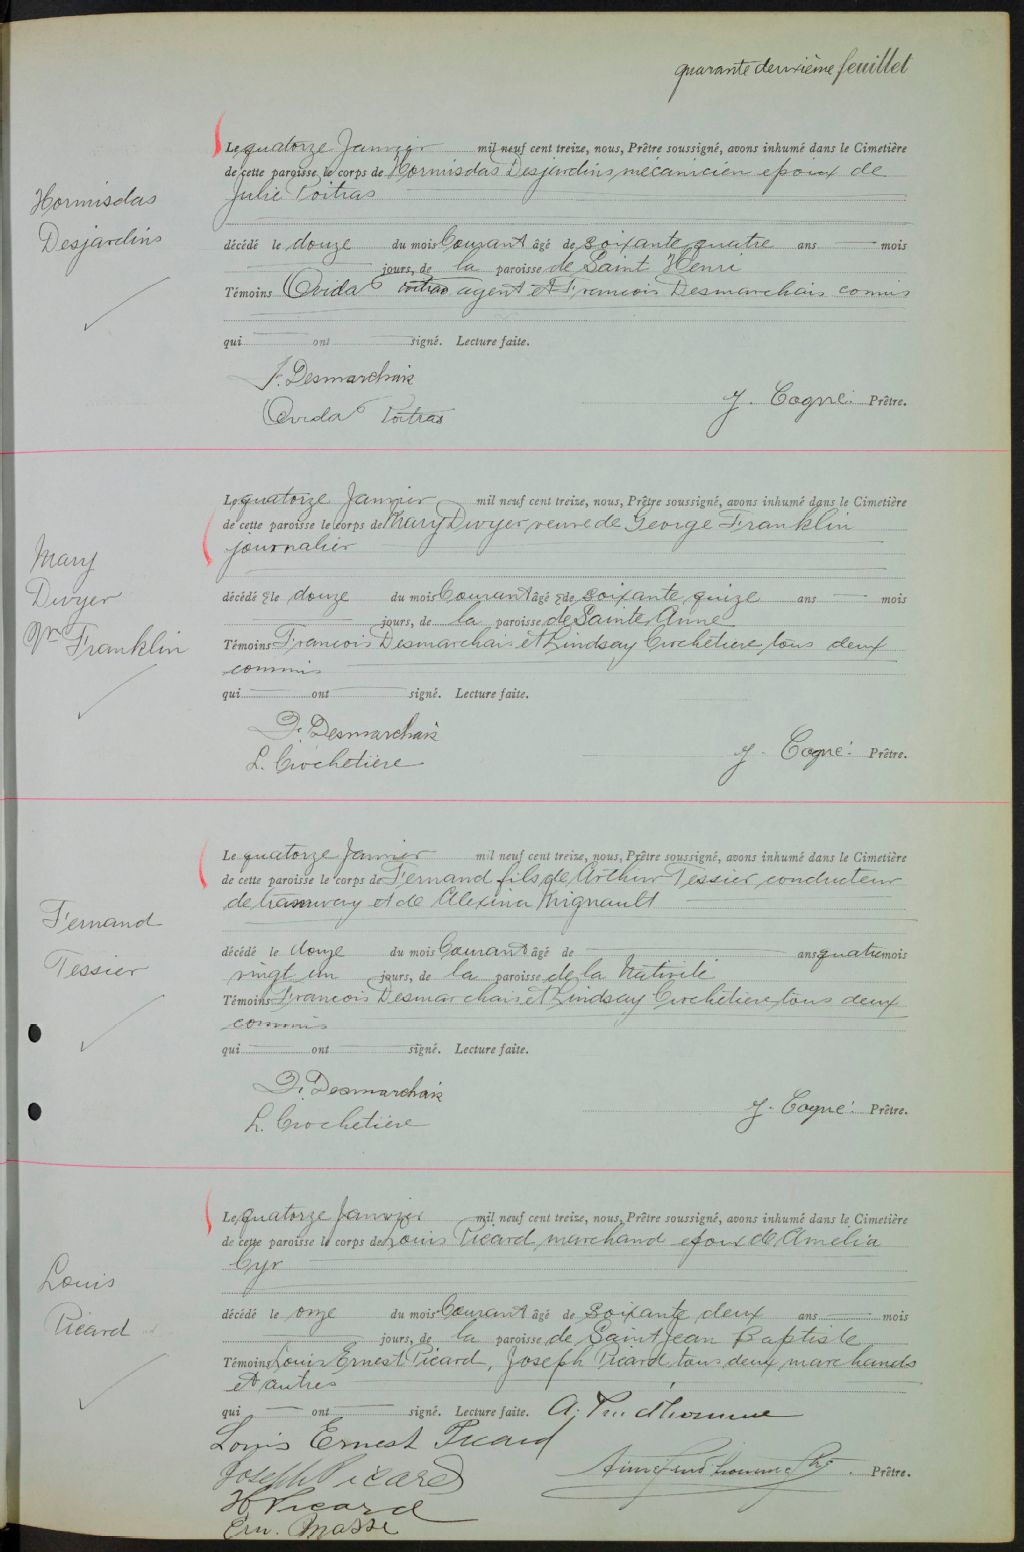 quarante deuxième feuillet
Hormisdas
Desjardins
Le quatorze Janvier mil neuf cent treize, nous, Prêtre soussigné, avons inhumé dans le Cimetière
de cette paroisse le corps de Hormisdas Desjardins mécanicien epoux de
Julie Poitras
décédé le douze du mois Courant âgé de soixante quatre ans — mois
— jours, de la paroisse de Saint Henri
Témoins Ovida Poitras agent et Francois Desmarchais commis
qui — ont — signé. Lecture faite.
F. Desmarchais
Ovida Poitras
J. Cogné. Prêtre.
Mary
Dwyer
Vve Franklin
Le quatorze Janvier mil neuf cent treize, nous, Prêtre soussigné, avons inhumé dans le Cimetière
de cette paroisse le corps de Mary Dwyer, veuve de George Franklin
journalier
décédée le douze du mois Courant âgée de soixante quize ans — mois
— jours, de la paroisse de Sainte Anne
Témoins Francois Desmarchais et Lindsay Crochetiere, tous deux
commis
qui — ont — signé. Lecture faite.
F. Desmarchais
L. Crochetiere
J. Cogné. Prêtre.
Fernand
Tessier
Le quatorze Janvier mil neuf cent treize, nous, Prêtre soussigné, avons inhumé dans le Cimetière
de cette paroisse le corps de Fernand fils de Arthur Tessier conducteur
de tramway et de Alexina Mignault
décédé le douze du mois Courant âgé de — ans quatre mois
vingt un jours, de la paroisse de la Nativité
Témoins Francois Desmarchais et Lindsay Crochetiere, tous deux
commis
qui — ont — signé. Lecture faite.
F. Desmarchais
L. Crochetiere
J. Cogné. Prêtre.
Louis
Picard
Le quatorze Janvier mil neuf cent treize, nous, Prêtre soussigné, avons inhumé dans le Cimetière
de cette paroisse le corps de Louis Picard, marchand epoux de Amélia
Cyr
décédé le onze du mois Courant âgé de soixante deux ans — mois
— jours, de la paroisse de Saint Jean Baptiste
Témoins Louis Ernest Picard, Joseph Picard tous deux marchands
et autres
qui — ont — signé. Lecture faite. A. Prud'homme
Louis Ernest Picard
Joseph Picard
H Picard
Ern. Massé
Prud'homme Ptre. Prêtre.